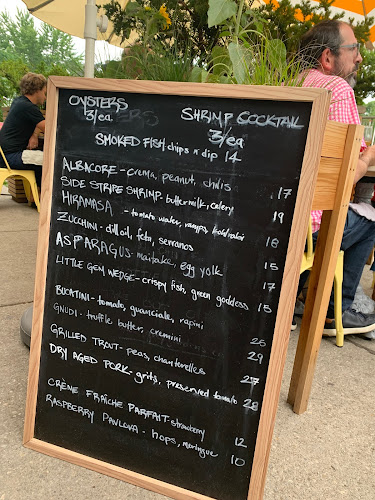 OYSTERS
3/ea
SHRIMP COCKTAIL
3/ea
SMOKED FISH chips n dip 14
ALBACORE - crema, peanut, chilis 17
SIDE STRIPE SHRIMP - buttermilk, celery 19
HIRAMASA - tomato water, ramps, kohlrabi 18
ZUCCHINI - dill oil, feta, serranos 15
ASPARAGUS - maitake, egg yolk 17
LITTLE GEM WEDGE - crispy fish, green goddess 15
BUCATINI - tomato, guanciale, rapini 26
GNUDI - truffle butter, cremini 29
GRILLED TROUT - peas, chanterelles 27
DRY AGED PORK - grits, preserved tomato 28
CRÈME FRAÎCHE PARFAIT - strawberry 12
RASPBERRY PAVLOVA - hops, meringue 10